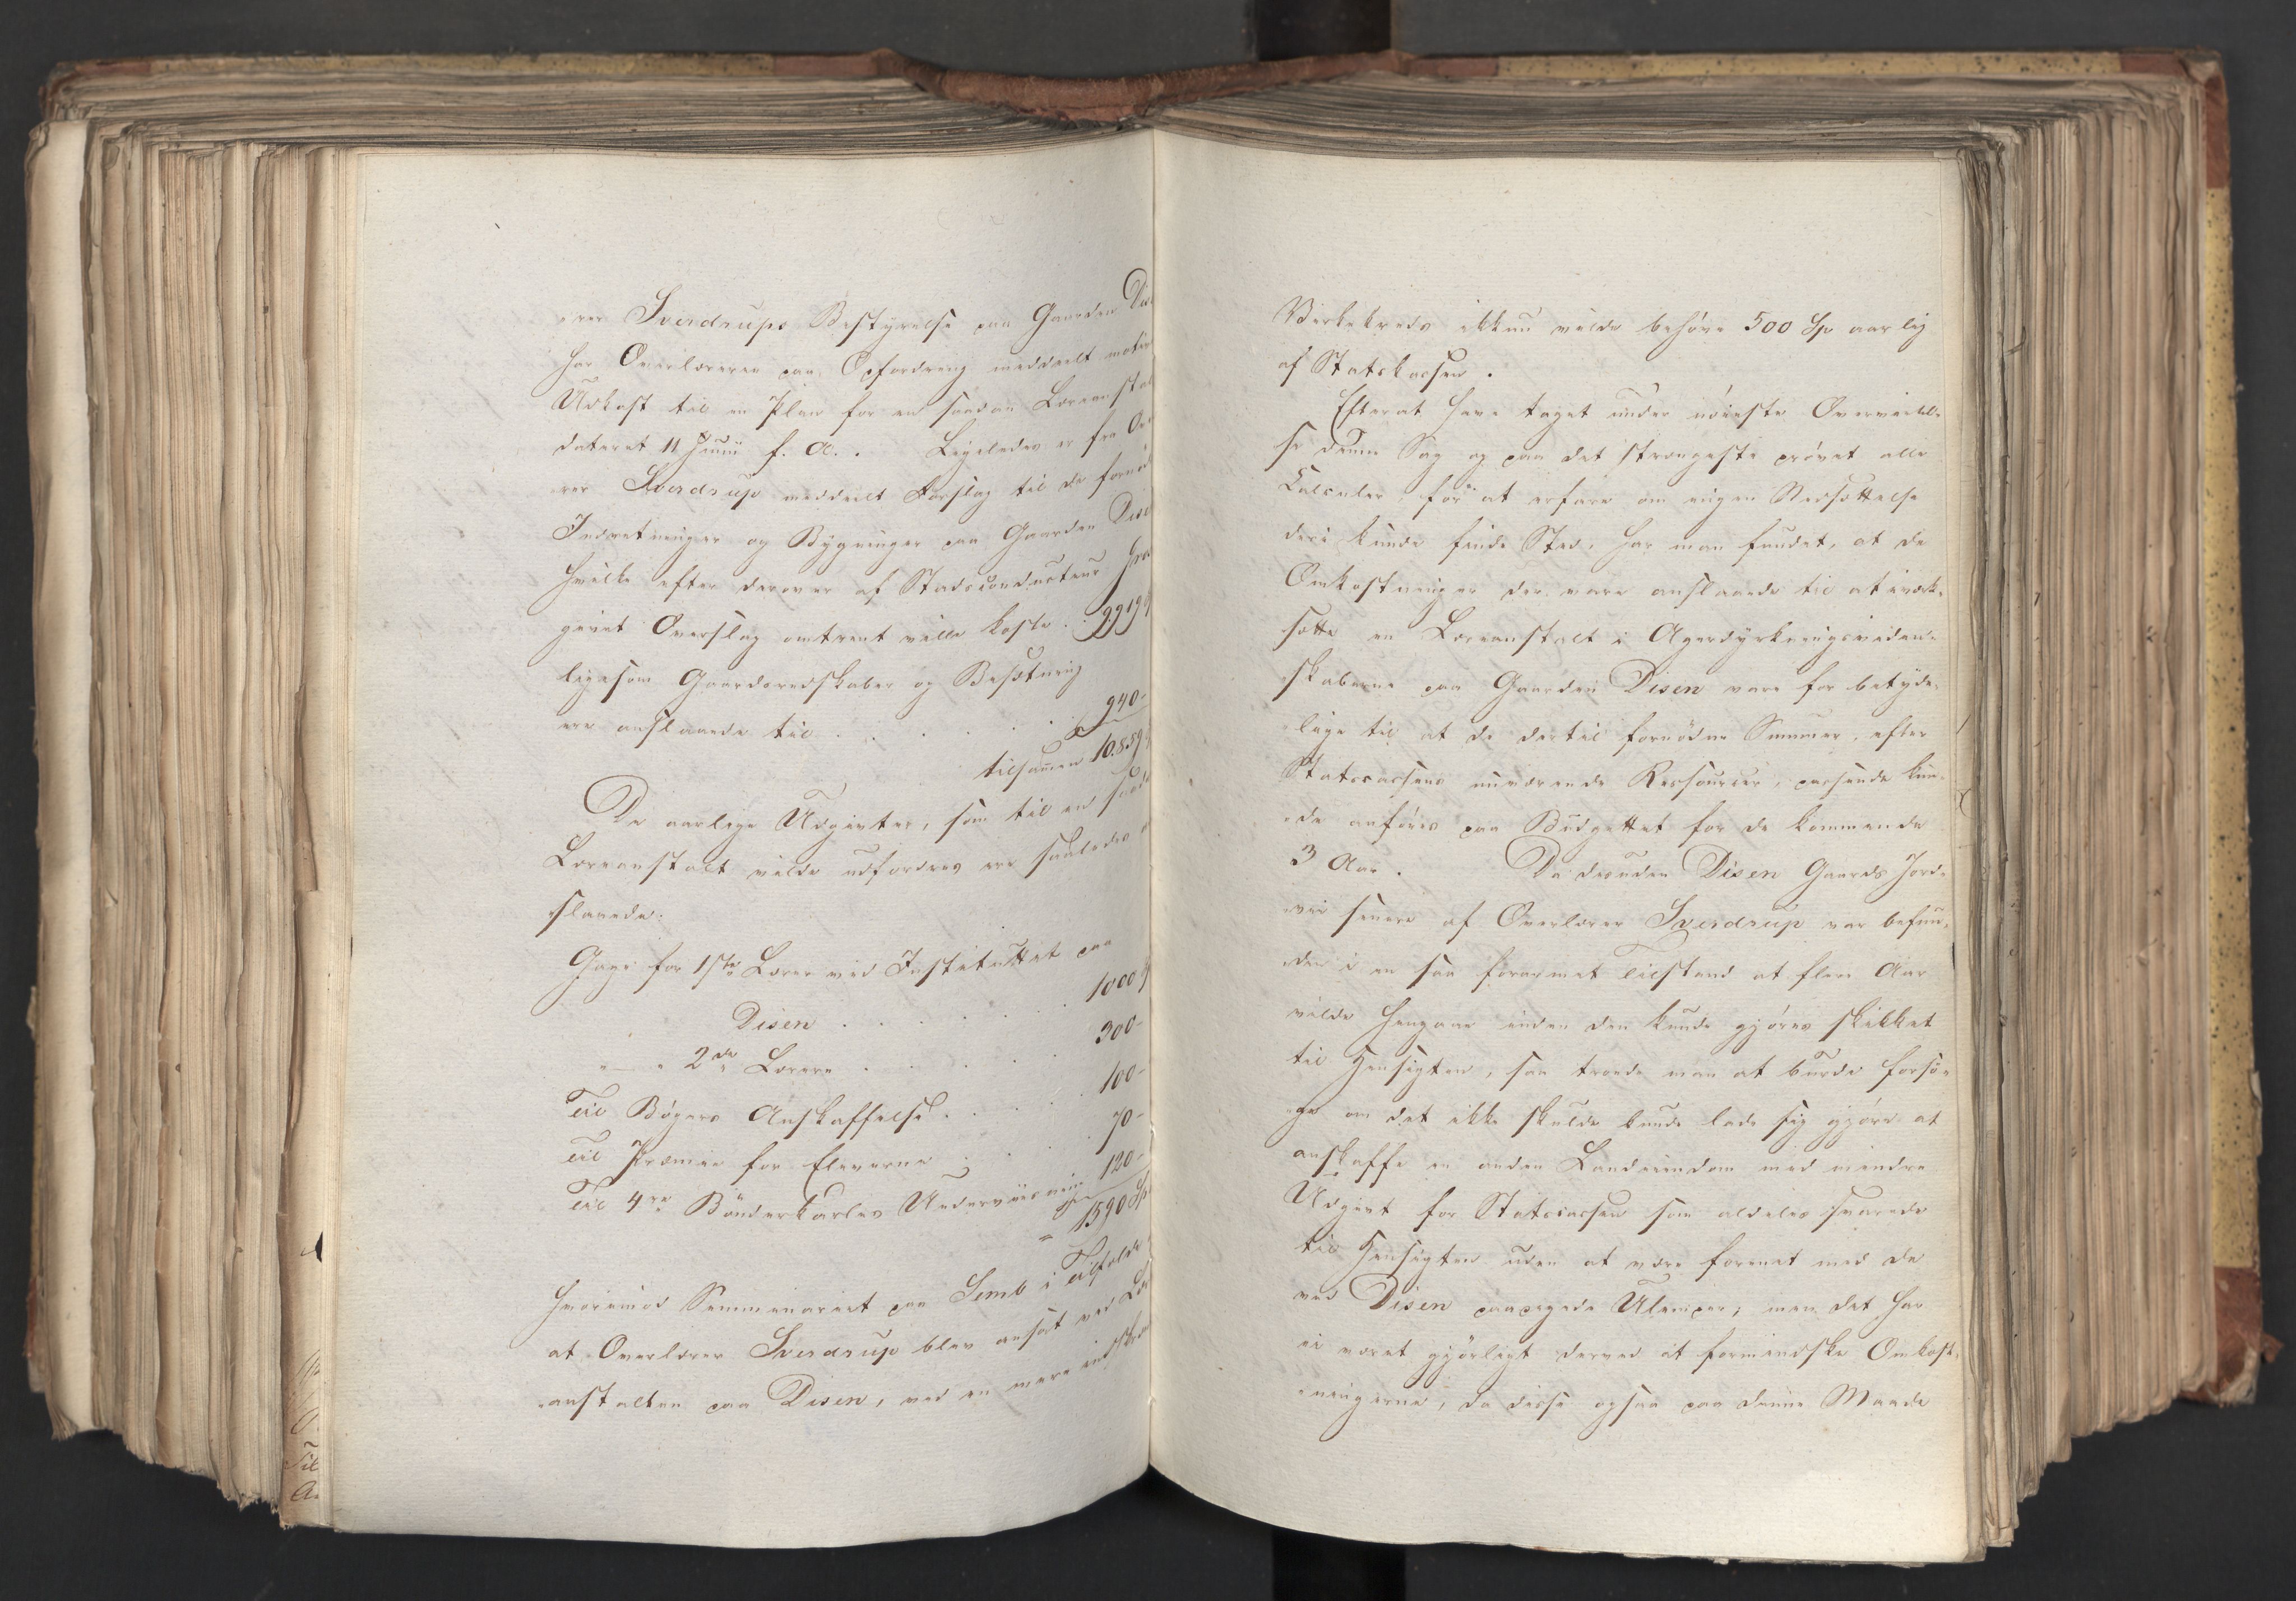 rer Sverdrups Bestyrelse paa Gaarden Dis
har Overlæreren paa Opfordring meddeelt motiv
Udkast til en Plan for en saadan Læreanstal
dateret 11 Junii f. A.. Ligeledes er fra Ov
rer Sverdrup meddeelt Forslag til de fornød
Indretninger og Bygninger paa Gaarden Dise
hvilke efter derover af Stadsconducteur
givet Overslag omtrent ville koste . . 9919
ligesom Gaardsredskaber og Besætning
ere anslaaede til . . . . . . 940-
tilsamen 10.859
De aarlige Udgivter, som til en saad
Læreanstalt vilde udfordres ere saaledes
slaaede:
Gage for 1ste Lærer ved Instituttet paa
Disen . . . . . . 1000
" — " 2den Lærere . . . . . 300-
Til Bøgers Anskaffelse . . . . 100-
Til Præmier for Eleverne . . . . 70-
Til 4re Bönderkarles Underviisning 120-
= 1590 Sp
hvorimod Seminariet paa Semb i Tilfælde
at Overlærer Sverdrup blev ansat ved Læ
anstalten paa Disen, ved en mere indskræn
Virkekreds ikkun vilde behøve 500 Sp aarlig
af Statskassen.
Efterat have taget under nöieste Overveiel-
se denne Sag og paa det strængeste prövet alle
Calculer, for at erfare om nogen Nedsættelse
deri kunde finde Sted, har man fundet, at de
Omkostninger der vare anslaaede til at iværk-
sætte en Læreanstalt i Agerdyrkningsviden-
skaberne paa Gaarden Disen vare for betyde-
lige til at de dertil fornödne Summer, efter
Statscassens nuværende Ressourcer, passende kun-
de anföres paa Budgettet for de kommende
3 Aar. Da desuden Disen Gaards Jord-
vei senere af Overlærer Sverdrup var befun-
den i en saa forarmet Tilstand at flere Aar
vilde hengaae inden den kunde gjöres skikket
til Hensigten, saa troede man at burde forsö-
ge om det ikke skulde kunde lade sig gjöre at
anskaffe en anden Landeiendom med mindre
Udgivt for Statscassen som aldeles svarede
til Hensigten uden at være forenet med de
ved Disen paapegede Ulemper, men det har
ei været gjörligt derved at formindske Omkost-
ningerne, da disse ogsaa paa denne Maade